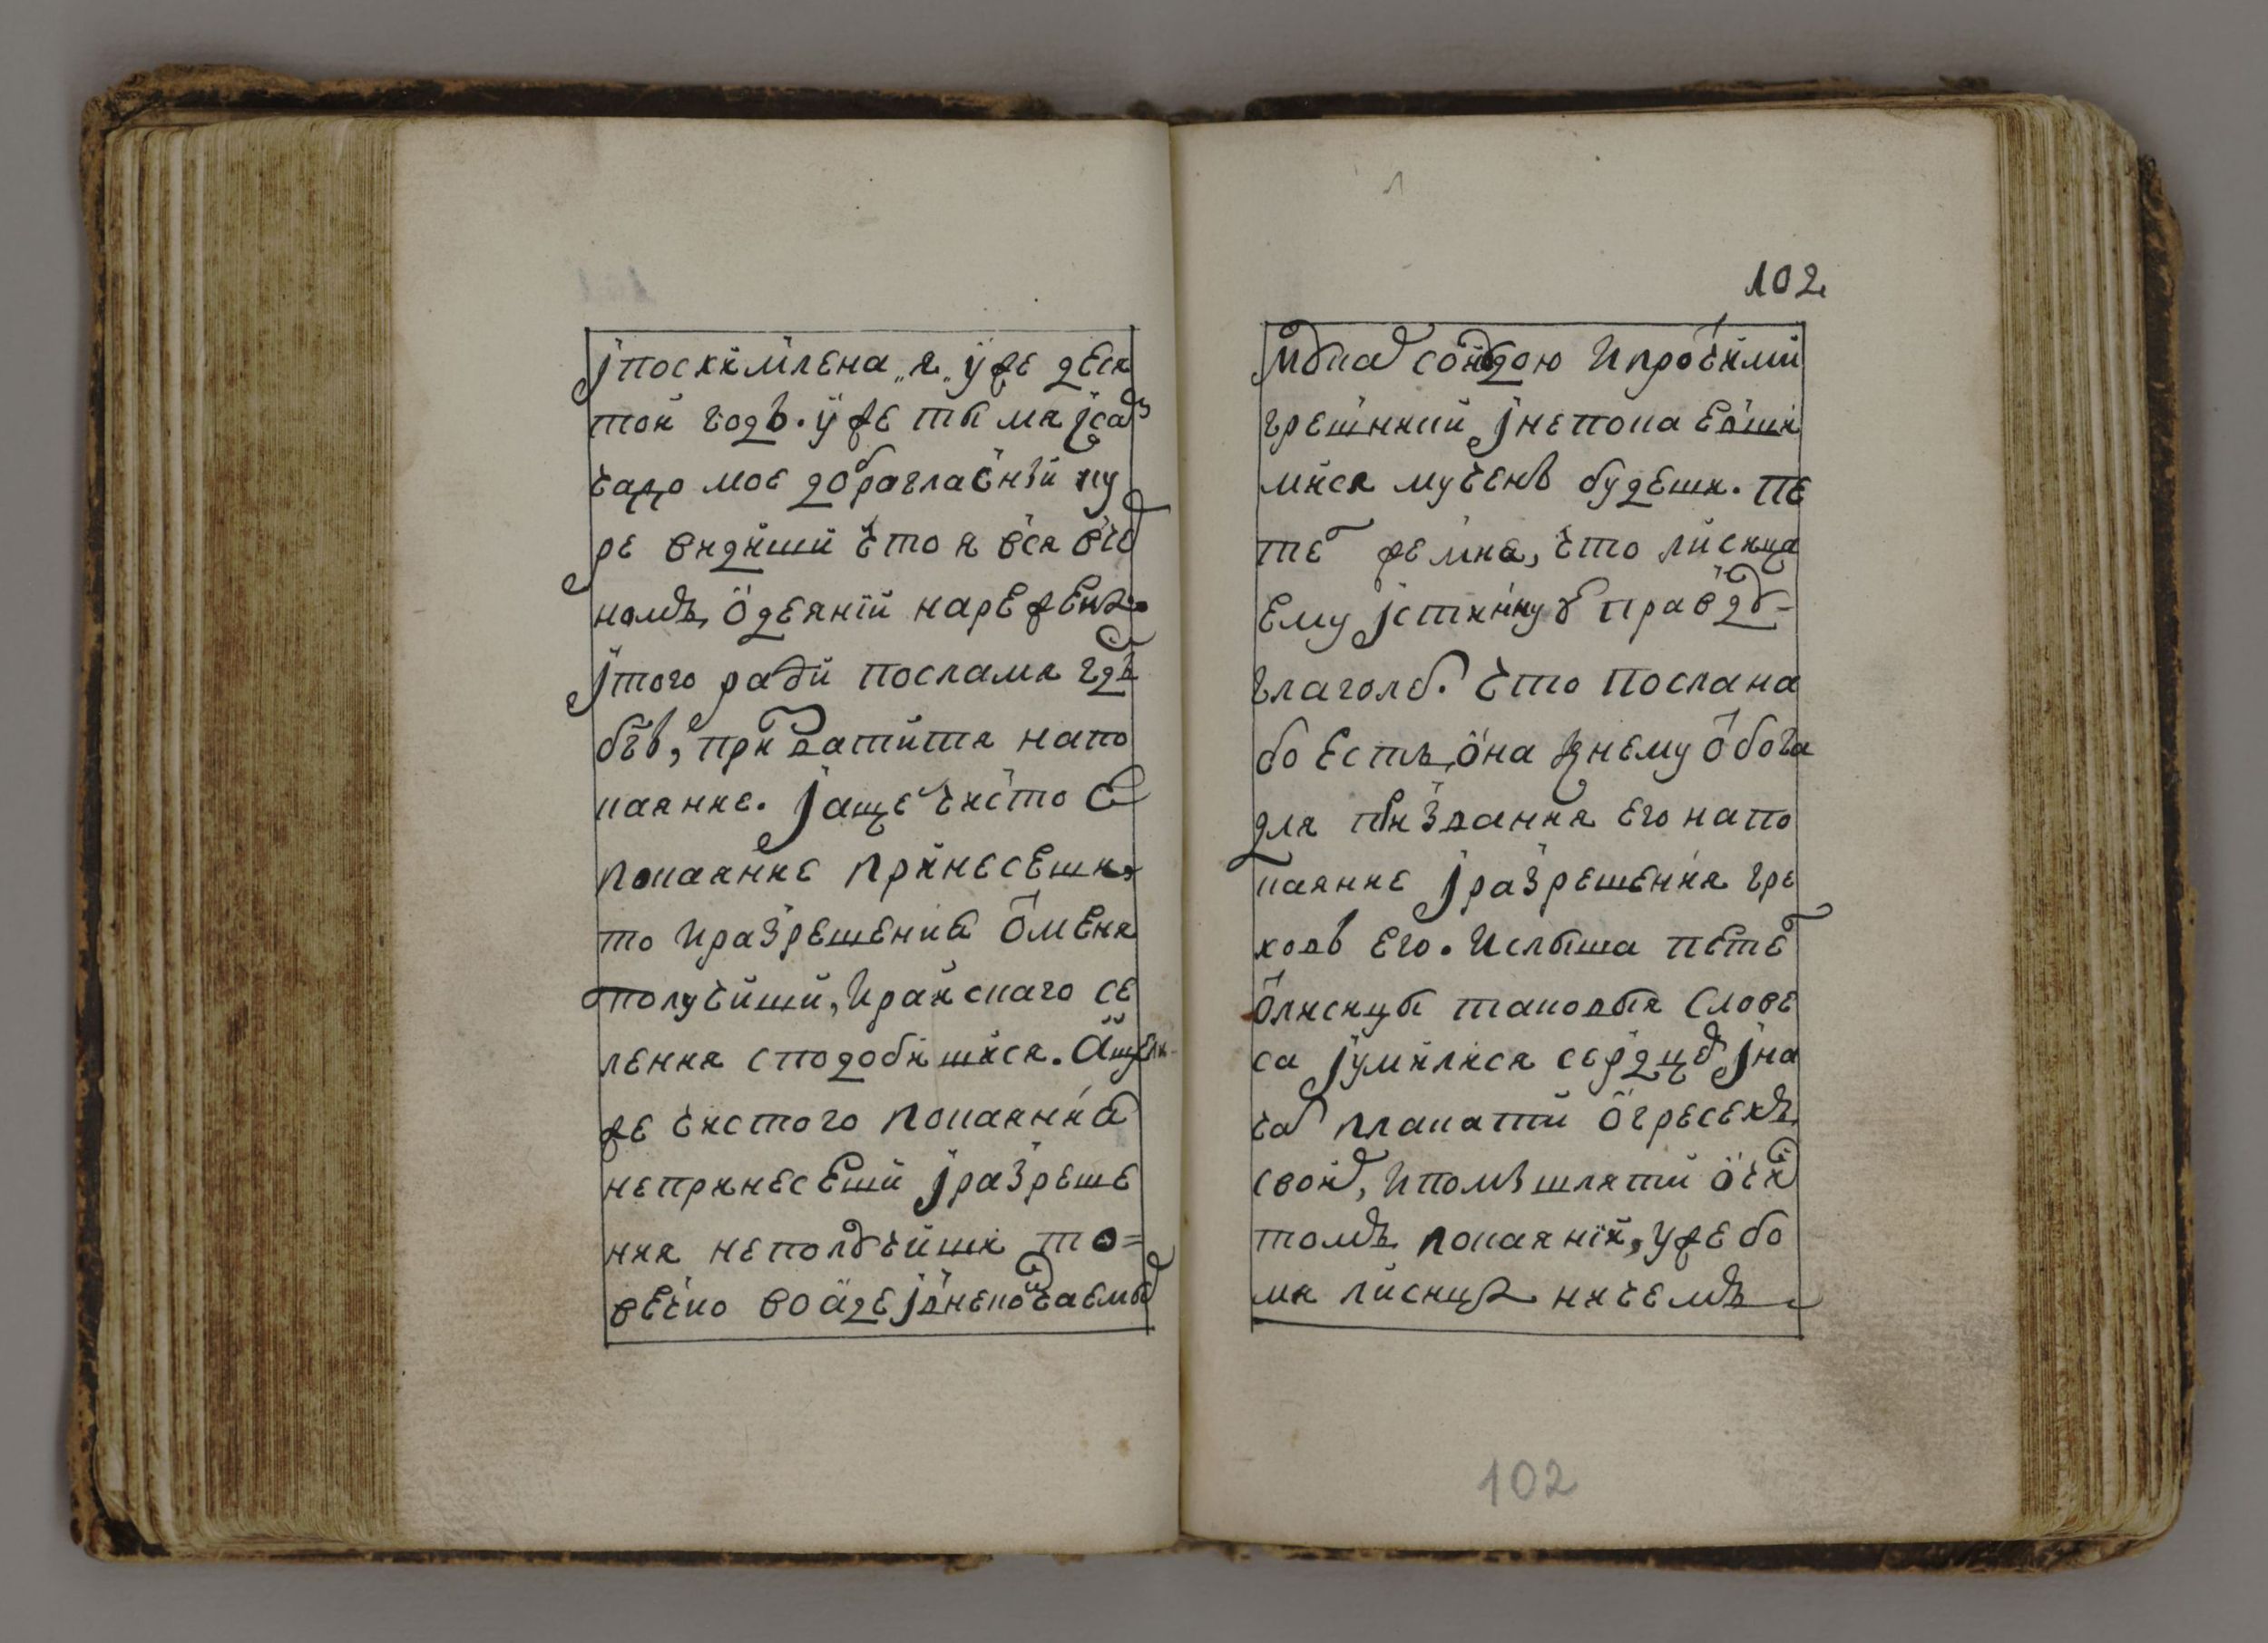 јпоскимлена „я„ уже деся
той годъ. уже ты мя јсам
чадо мое доброгласный ку
ре видиши что я вся вче
номъ одеянии нареженъ.
јтого ради посла мя гдь
бгъ, призватитя напо
каяние. јаще чисто е
покаяние принесеши,
то иразрешение ѿменя
получиши, ирайскаго се
ления сподобишися. Ащели
же чистого покаяния
непринесеши јразреше
ния неполучиши то=
вечно воаде јвнекончаемых
102
мукахъ соиудою ипрочими
грешники јнепокаевши
мися мученъ будеши. пе
тел жемня, что лисица
ему јстинну правду-
глаголе. что послана
бо есть, она кнему ѿбога
для призвания его напо
каяние јразрешения гре
ховъ его. ислыша петел
ѿлисицы таковыя слове
са јумилися сердце јна
ча плакати огресехъ
своих, ипомышляти очи
томъ покаянии, уже бо
мя лисица ничемъ
102